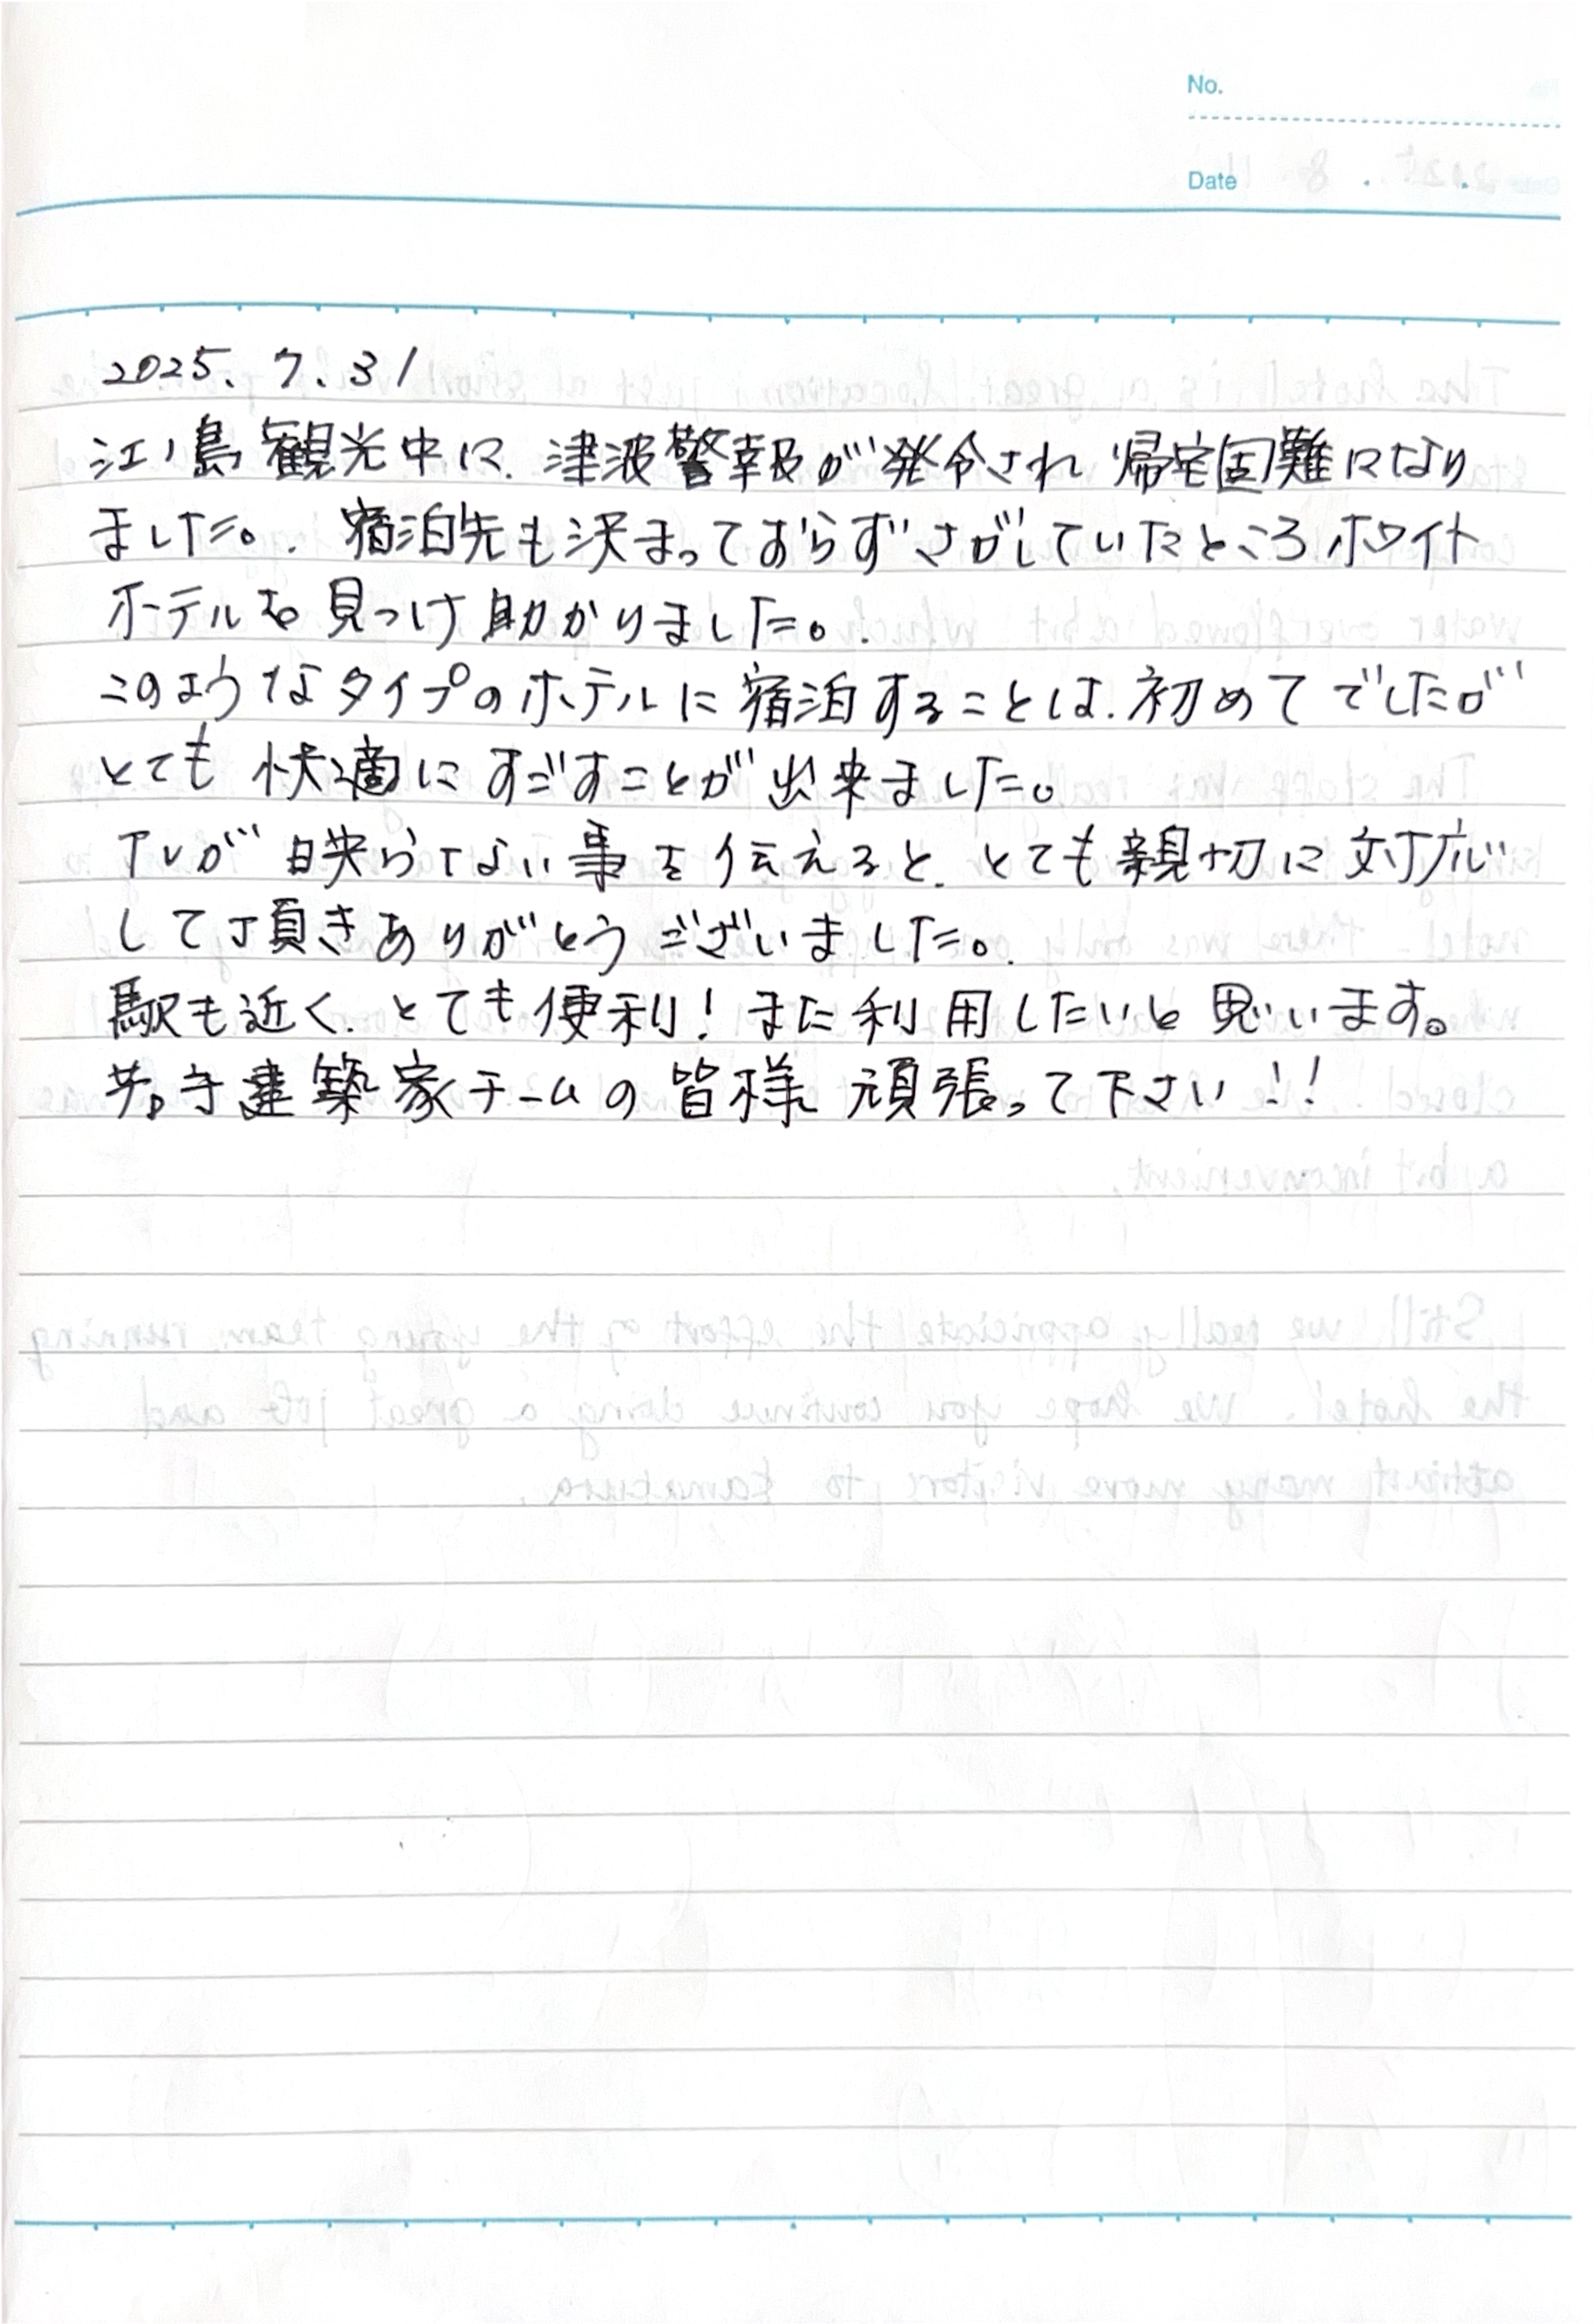 No.
Date
2025. 7. 31
江ノ島観光中に、津波警報が発令され帰宅困難になり
ました。宿泊先も決まっておらずさがしていたところホワイト
ホテルを見つけ助かりました。
このようなタイプのホテルに宿泊することは、初めてでしたが
とても快適にすごすことが出来ました。
TVが映らない事を伝えると、とても親切に対応
して頂きありがとうございました。
駅も近く、とても便利!また利用したいと思います。
若き建築家チームの皆様 頑張って下さい!!